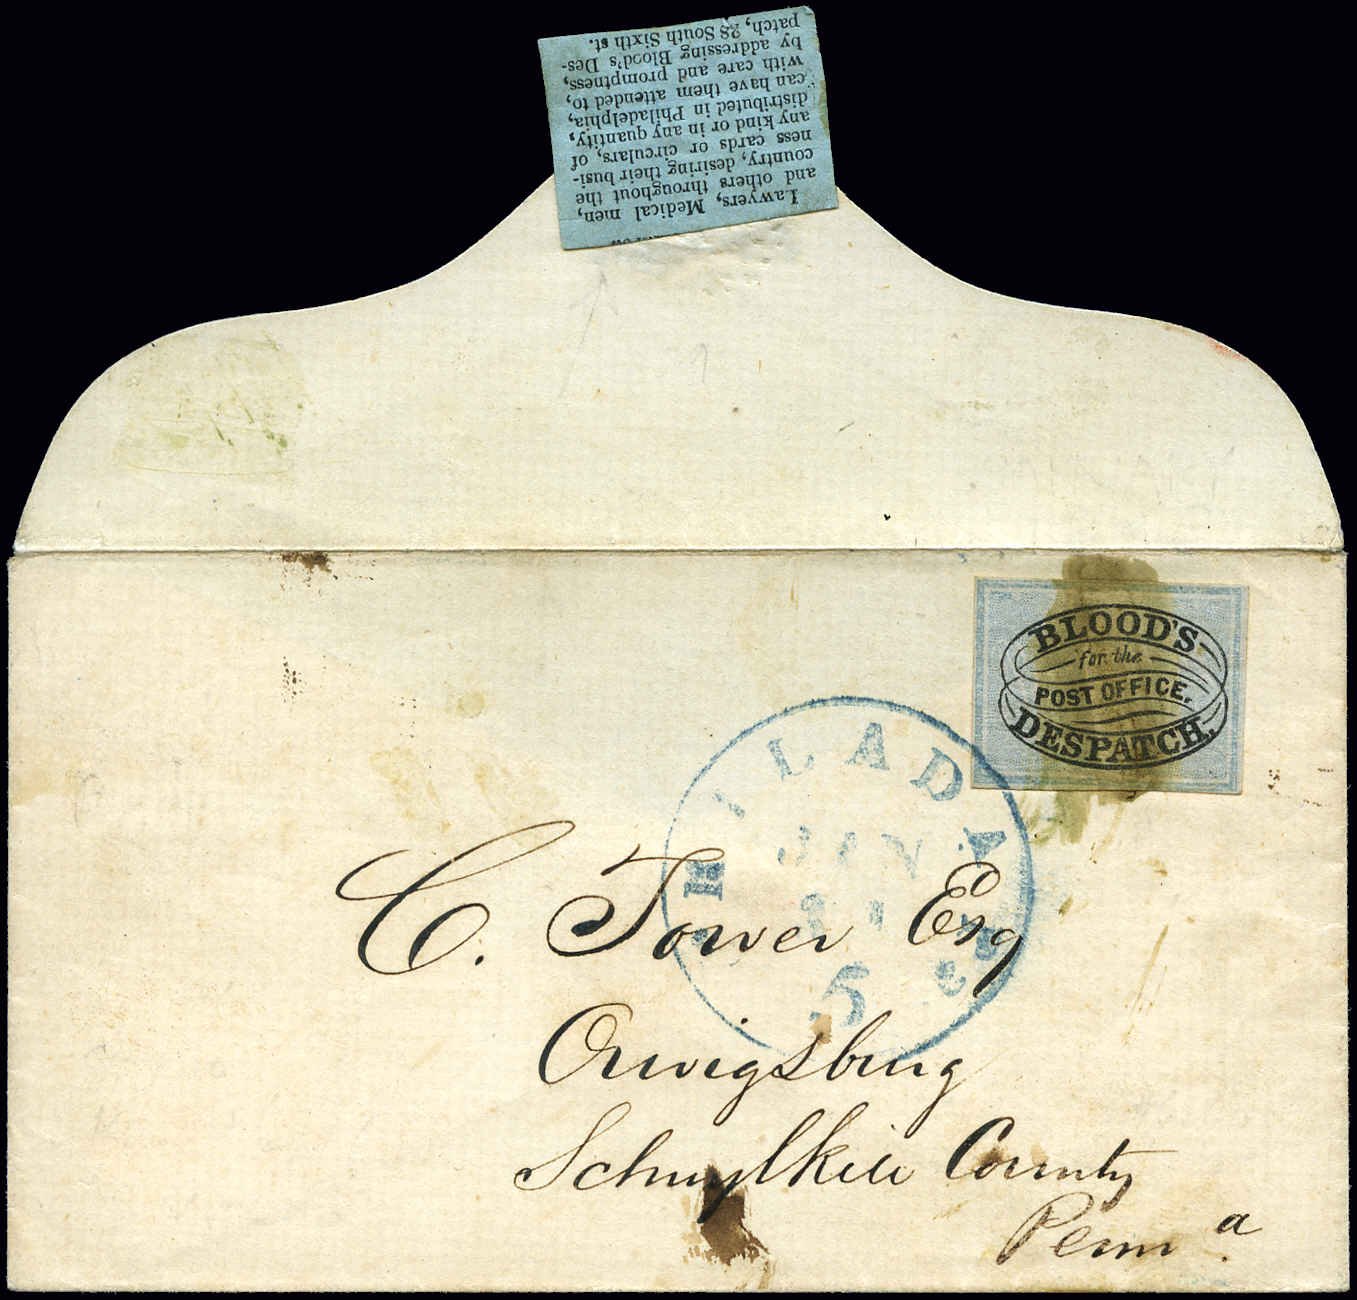 Lawyers, Medical men,
and others throughout the
country, desiring their busi-
ness cards or circulars, of
any kind or in any quantity,
distributed in Philadelphia,
can have them attended to,
with care and promptness,
by addressing Blood's Des-
patch, 28 South Sixth st.
BLOOD'S
for the
POST OFFICE.
DESPATCH.
PHILADA
JAN
5 cts
C. Tower Esq
Orwigsburg
Schuylkill County
Penna.